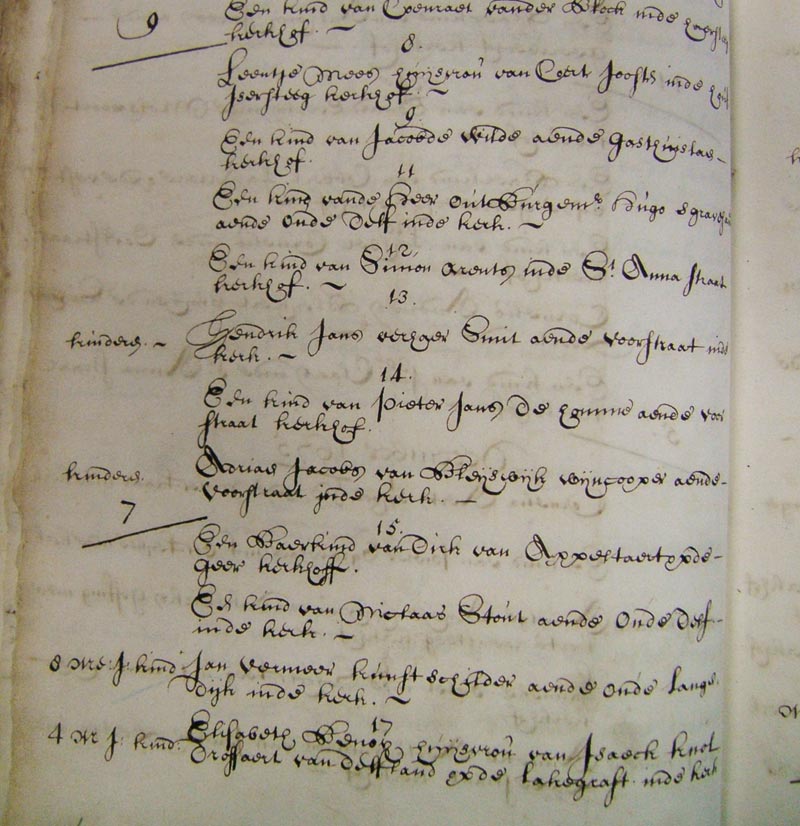 9 Een kind van Coenraet vander Block inde
kerkhof. ~
8.
Leentje Mees huijsvrou van Coert Joosten inde
kerkhof ~
9
Een kind van Jacob de Wilde aende Gasthuijslaen
kerkhof.
11
Een kind vande Heer Out Burgemr. Hugo sgravesa
aende Oude Delf inde kerk. ~
12
Een kind van Simon Arents inde St. Anna straat
kerkhof. ~
13.
kinderen. ~ Hendrik Jans Smit aende voorstraat inde
kerk. ~
14.
Een kind van Pieter Jans de aende voor
straat kerkhof.
kinderen. Adriaen Jacobs van Bleijswijk wijncooper aende
7 voorstraat inde kerk. ~
15.
Een Baerkind van Dirk van
geer kerkhoff.
Een kind van Niclaas Stout aende Oude Delf
inde kerk. ~
8 Me: J: kind: Jan Vermeer kunstschilder aende Oude Lange
dijk inde kerk. ~
17
4 M J: kind: Elisabeth huijsvrou van Isaeck knol
Drossaert van Delffland opde inde kerk